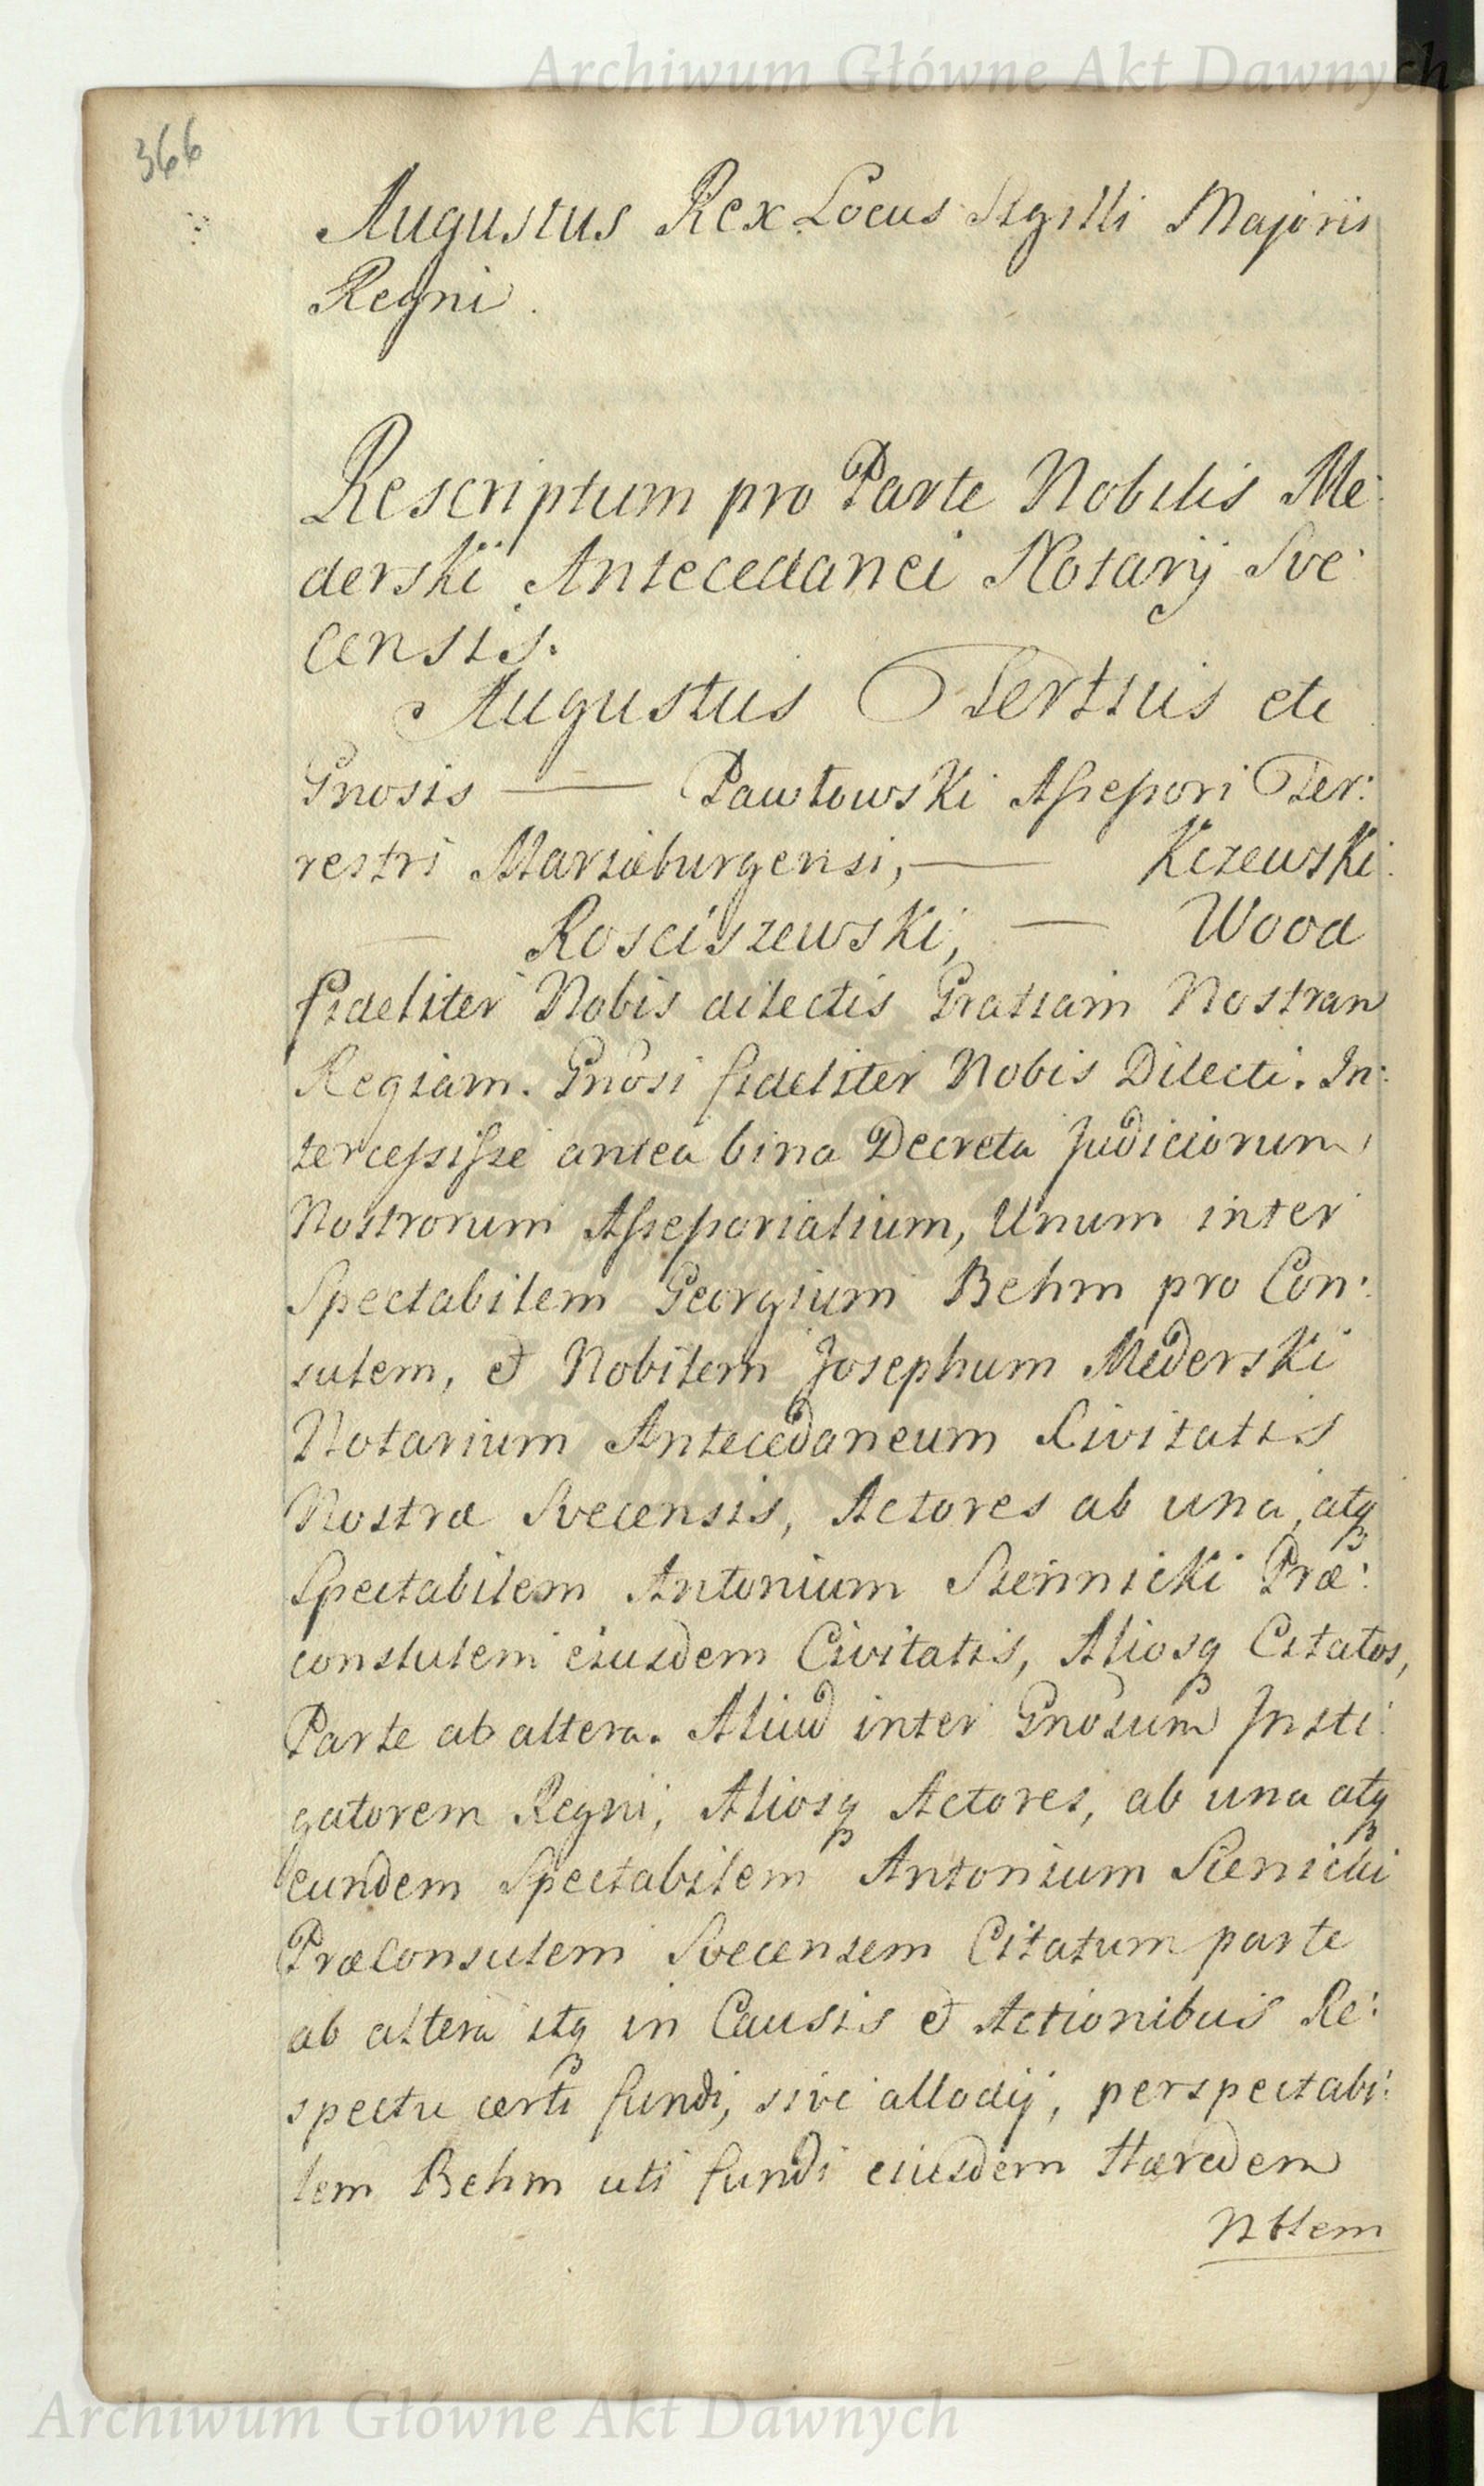 Archiwum Główne Akt Dawnych
366
Augustus Rex Locus Sigilli Majoris
Regni.
Rescriptum pro Parte Nobilis Me:
derski Antecedanei Notarij Sve:
censis.
Augustus Tertius etc
Gnosis — Pawłowski Assessori Ter:
restri Mariæburgensi, — Kczewski
— Rosciszewski, — Wood
fideliter Nobis dilectis Gratiam Nostram
Regiam. Gnosi fideliter Nobis Dilecti. In:
tercessisse antea bina Decreta Judiciorum
Nostrorum Assessorialium, Unum inter
Spectabilem Georgium Behm pro Con:
sulem, et Nobilem Josephum Mederski
Notarium Antecedaneum Civitatis
Nostræ Svecensis, Actores ab una, atq
Spectabilem Antonium Siennicki Præ:
consulem eiusdem Civitatis, Aliosq Citatos,
Parte ab altera. Aliud inter Gnosum Insti:
gatorem Regni, Aliosq Actores, ab una atq
eundem Spectabilem Antonium Sienicki
Præconsulem Svecensem Citatum parte
ab altera itq in Causis et Actionibus Re:
spectu certi fundi, sive allodij, perspectabi:
lem Behm uti fundi eiusdem Hæredem
Nblem
Archiwum Główne Akt Dawnych